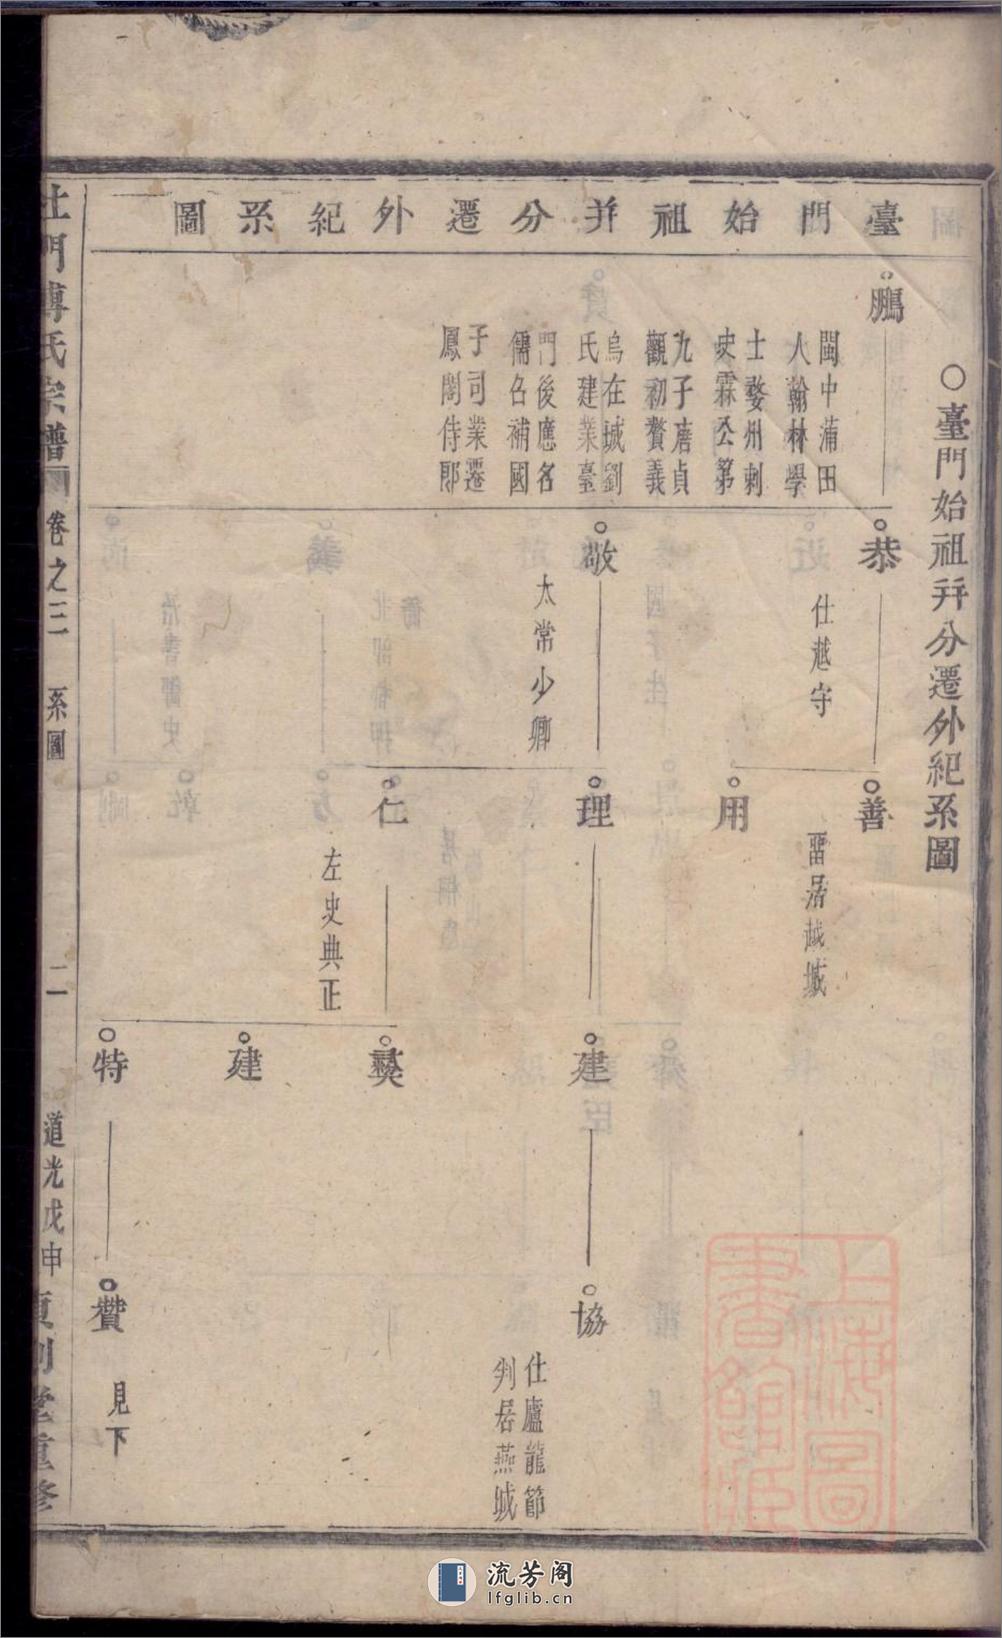 臺門始祖并分遷外紀系圖
○臺門始祖并分遷外紀系圖
鵬
閩中蒲田
人翰林學
士婺州刺
史霖公第
九子唐貞
觀初贅義
烏在城劉
氏建業臺
門後應名
儒召補國
子司業遷
鳳閣侍郎
恭
仕越守
敬
太常少卿
善
畱居越城
用
理
仁
左史典正
建
彛
建
特
協
仕廬龍節
判居燕城
贊
見下
杜門傅氏宗譜
卷之三
系圖
二
道光戊申
重修
上海圖書館藏
流芳阁
lfglib.cn